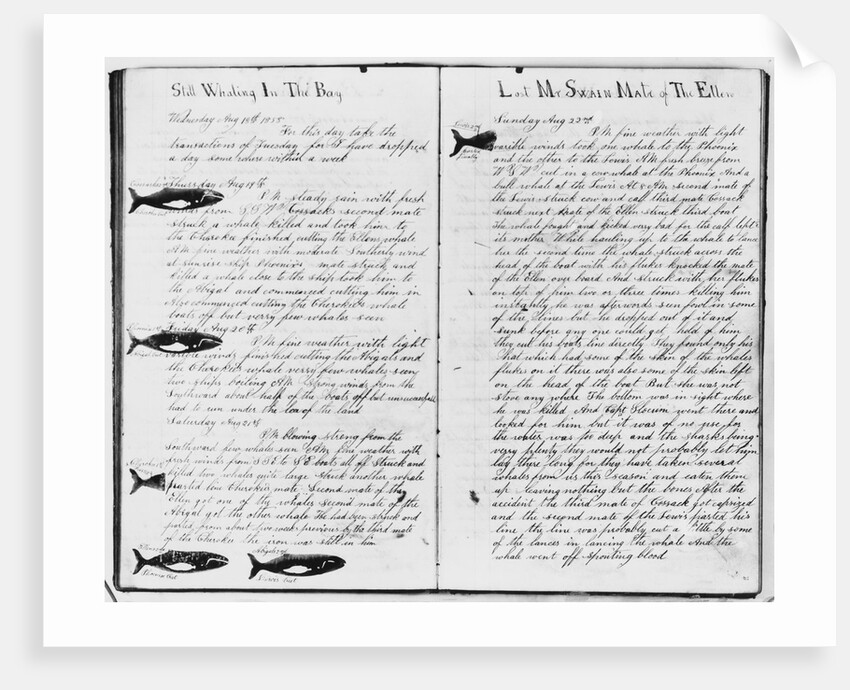 Still Whaling In The Bay
Wednesday Aug 18th 1858
For this day take the
transactions of Tuesday for I have dropped
a day some where within a week
Thursday Aug 19th
P.M. steady rain with fresh
winds from Cossack's second mate
struck a whale killed and took him to
the Cherokee finished cutting the Ellens whale
A.M. fine weather with moderate Southerly wind
at sunrise ship Phoenix's mate struck and
killed a whale close to the ship took him to
the Abigal and commenced cutting him in
Also commenced cutting the Cherokee's whale
boats off but verry few whales seen
Friday Aug 20th
P.M. fine weather with light
varible winds finished cutting the Abigals and
the Cherokees whale verry few whales seen
two ships boiling A.M. strong winds from the
Southward about half of the boats off but unsuccessfull
had to run under the lea of the land
Saturday Aug 21st
P.M. blowing strong from the
Southward few whales seen A.M. fine weather with
fresh winds from S.S.E. to S.E. boats all off Struck and
killed two whales quite large Struck another whale
parted line Cherokee's mate. Second mate of the
Ellen got one of the whales Second mate of the
Abigal got the other whale He had been struck and
parted from about two weeks previous by the third mate
of the Cherokee the iron was still in him
Lewis' Boat
Lost Mr Swain Mate of The Ellen
Sunday Aug 22d
P.M. fine weather with light
varible winds took one whale to the Phoenix
and the other to the Lewis A.M. fresh breeze from
cut in a cow whale at the Phoenix And a
bull whale at the Lewis At 8 A.M. second mate of
the Lewis struck cow and calf third mate Cossack
struck next Mate of the Ellen struck third boat
The whale fough and kicked very bad for the calf left
its mother While hauling up to the whale to lance
her the second time the whale struck across the
head of the boat with her flukes knocked the mate
of the Ellen over board And struck with her flukes
on top of him two or three times killing him
instantly he was afterwords seen fowl in some
of the lines but he dropped out of it and
sunk before any one could get hold of him
they cut his boats line directly They found only his
hat which had some of the skin of the whales
flukes on it there was also some of the skin left
on the head of the boat But she was not
stove any where The bottom was in sight where
he was killed And Capt Slocum went there and
looked for him but it was of no use for
the water was so deep and the sharks being
very plenty they would not probably let him
lay there long for they have taken several
whales from us this season and eaten them
up leaving nothing but the bones After the
accident the third mate of Cossack got capsized
and the second mate of the Lewis parted his
line the line was probably cut a little by some
of the lances in lancing the whale And the
whale went off spouting blood